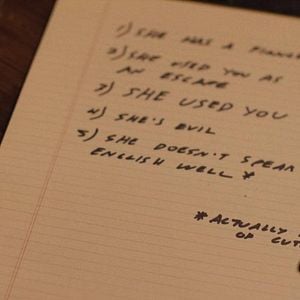 1) SHE HAS A
2) SHE USED YOU AS
AN ESCAPE
3) SHE USED YOU
4) SHE'S EVIL
5) SHE DOESN'T SPEAK
ENGLISH WELL *
* ACTUALLY
OF